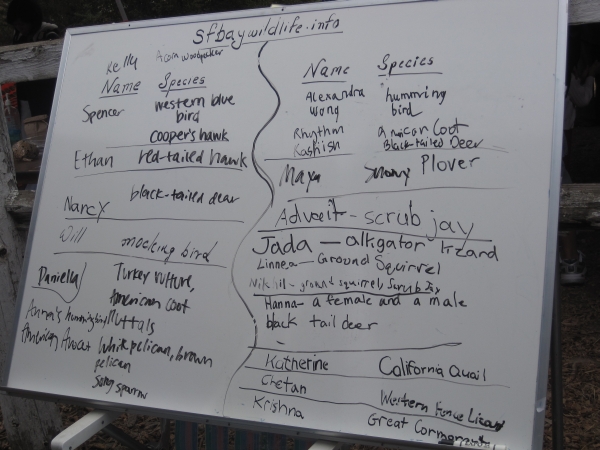 sfbaywildlife.info
Kelly Acorn Woodpecker
Name Species
Spencer western blue
bird
cooper's hawk
Ethan red-tailed hawk
Nancy black-tailed dear
Will mocking bird
Daniella Turkey vulture,
American coot
Anna's hummingbird Nuttals
American Avocet White pelican, brown
pelican
Song sparrow
Name Species
Alexandra humming
Wong bird
Rhythm American Coot
Kashish Black-tailed Deer
Maya Snowy Plover
Advait - scrub jay
Jada - alligator lizard
Linnea - Ground Squirrel
Nikhil - ground squirrel, Scrub Jay
Hanna - a female and a male
black tail deer
Katherine California Quail
Chetan Western Fence Lizard
Krishna Great Cormorant